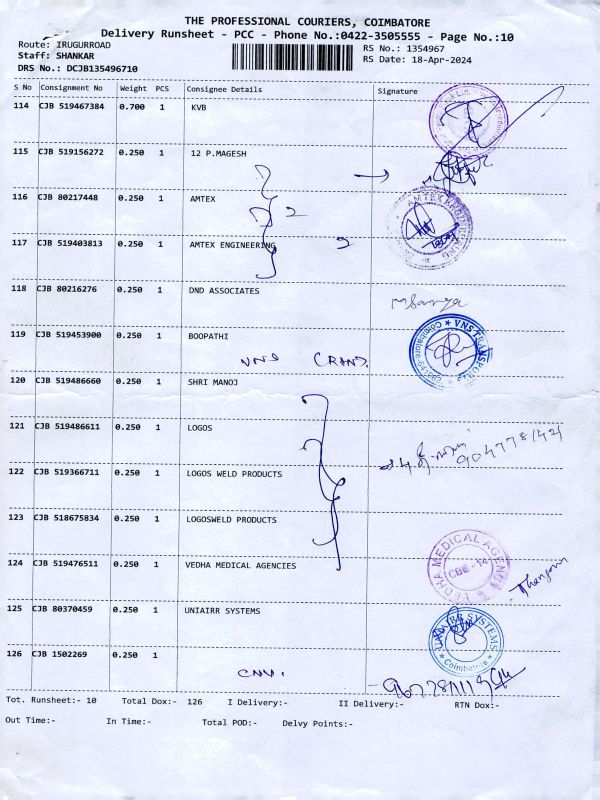 THE PROFESSIONAL COURIERS, COIMBATORE
Delivery Runsheet - PCC - Phone No.:0422-3505555 - Page No.:10
Route: IRUGURROAD
Staff: SHANKAR
DRS No.: DCJB135496710
RS No.: 1354967
RS Date: 18-Apr-2024
S No Consignment No Weight PCS Consignee Details Signature
114 CJB 519467384 0.700 1 KVB
115 CJB 519156272 0.250 1 12 P.MAGESH
116 CJB 80217448 0.250 1 AMTEX
2
117 CJB 519403813 0.250 1 AMTEX ENGINEERING 2
118 CJB 80216276 0.250 1 DND ASSOCIATES
119 CJB 519453900 0.250 1 BOOPATHI
VNS TRANSPORT
Coimbatore
VNS
120 CJB 519486660 0.250 1 SHRI MANOJ
121 CJB 519486611 0.250 1 LOGOS
122 CJB 519366711 0.250 1 LOGOS WELD PRODUCTS
123 CJB 518675834 0.250 1 LOGOSWELD PRODUCTS
124 CJB 519476511 0.250 1 VEDHA MEDICAL AGENCIES
VEDHA MEDICAL AGENCIES
CBE - 14
125 CJB 80370459 0.250 1 UNIAIRR SYSTEMS
UNIAIRR SYSTEMS
Coimbatore
126 CJB 1502269 0.250 1
Tot. Runsheet:- 10 Total Dox:- 126 I Delivery:- II Delivery:- RTN Dox:-
Out Time:- In Time:- Total POD:- Delvy Points:-